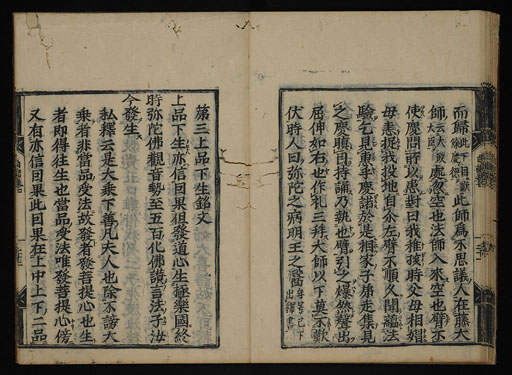 而歸此師爲不思議人在藤太
師處忽空也法師入來空也臂不
使慶問所以患對曰我稚孩時父母相媢
母恚捉我投地自尒左臂不順久聞薀法
驗乞見惠乎慶諾於是相家子弟走集見
之慶瞋目持誦乃執也臂引之爆然聲出
屈伸如右也作礼三拜大師以下莫不歎
伏時人曰弥陀之病明王之醫
第三上品下生銘文
上品下生亦信因果狙發道心生極樂國終
時弥陀佛觀音勢至五百化佛讃言法子汝
今發生
私釋云是大乘下善凡夫人也除不謗大
乘者非當品受法故發者發菩提心也生
者即得往生也當品受法唯發菩提心傍
又有亦信因果此因果在上中上下二品